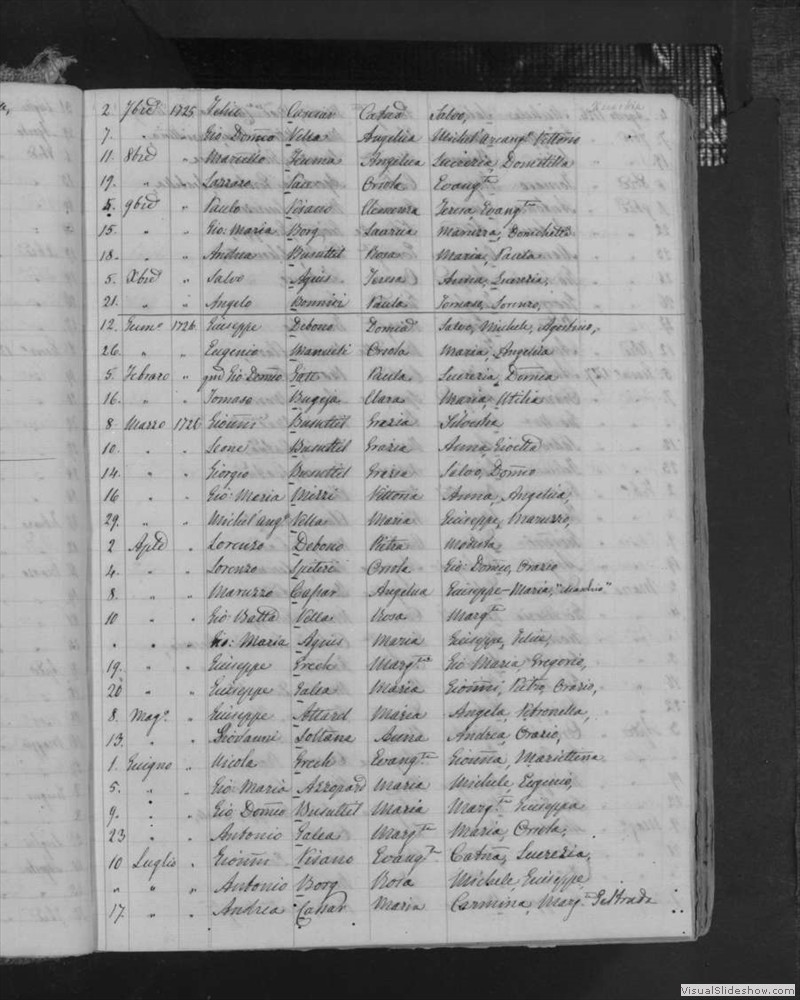 2 7bre 1725 Felice Caruan Catnā Salvo,
7. " Gio Domco Vella Angelica Michel'arcango Vittorio
11. 8bre " Marcello Teuma Angelica Lucrezia, Domitilla
19. " " Lazzaro Pace Orsola Evangta
5. 9bre " Paulo Pisano Clemenza Teresa, Evangta
15. " " Gio: Maria Borg Saaria Maruzza,
18. " " Andrea Busuttil Rosa Maria, Paula
5. Xbre " Salvo Agius Teresa Anna, Lucrezia,
21. " " Angelo Bonnici Paula Tomaso, Lorenzo,
12. Genno 1726. Giuseppe Debono Domca Salvo, Michele, Agostino,
26. " " Eugenio Manueli Orsola Maria, Angelica
5. Febraro " qm Gio Domco Gatt Paula Lucrezia, Domca
16. " " Tomaso Bugeja Clara Maria, Attilia
8. Marzo 1726 Gionni Busuttil Grazia Silvestra
10. " . Leone Busuttil Grazia Anna,
14. " . Giorgio Busuttil Grazia Salvo, Domco
16 " . Gio: Maria Mizzi Vittoria Anna, Angelica,
29. " " Michel'Ango Vella Maria Giuseppe, Maruzzo,
2 Aple . Lorenzo Debono Pietra Modesta,
4. " . Lorenzo Spiteri Orsola Gio: Domco, Orazio
8. " " Maruzzo Caspar Angelica Giuseppe-Maria,
10 " . Gio Batta Vella Rosa Margta
. . . Gio: Maria Agius Maria Giuseppe, Felice,
19. " . Giuseppe Grech Margta Gio Maria, Gregorio,
20 " . Giuseppe Galea Maria Gionni, Pietro, Orazio,
8. Mago. . Giuseppe Attard Maria Angela, Petronella,
13. " . Giovanni Soltana Anna Andrea, Orazio,
1. Guigno " Nicola Grech Evangta Gionna, Mariettina
5. " " Gio: Maria Azzopard Maria Michele, Eugenio,
9. " . Gio Domco Busuttil Maria Margta Giuseppa
23 " . Antonio Galea Margta Maria, Orsola,
10 Luglio . Gionni Pisano Evangta Catna, Lucrezia,
" " " Antonio Borg Rosa Michele, Giuseppe,
17. " . Andrea Cassar Maria Carmina, Marg. Geltruda
VisualSlideshow.com